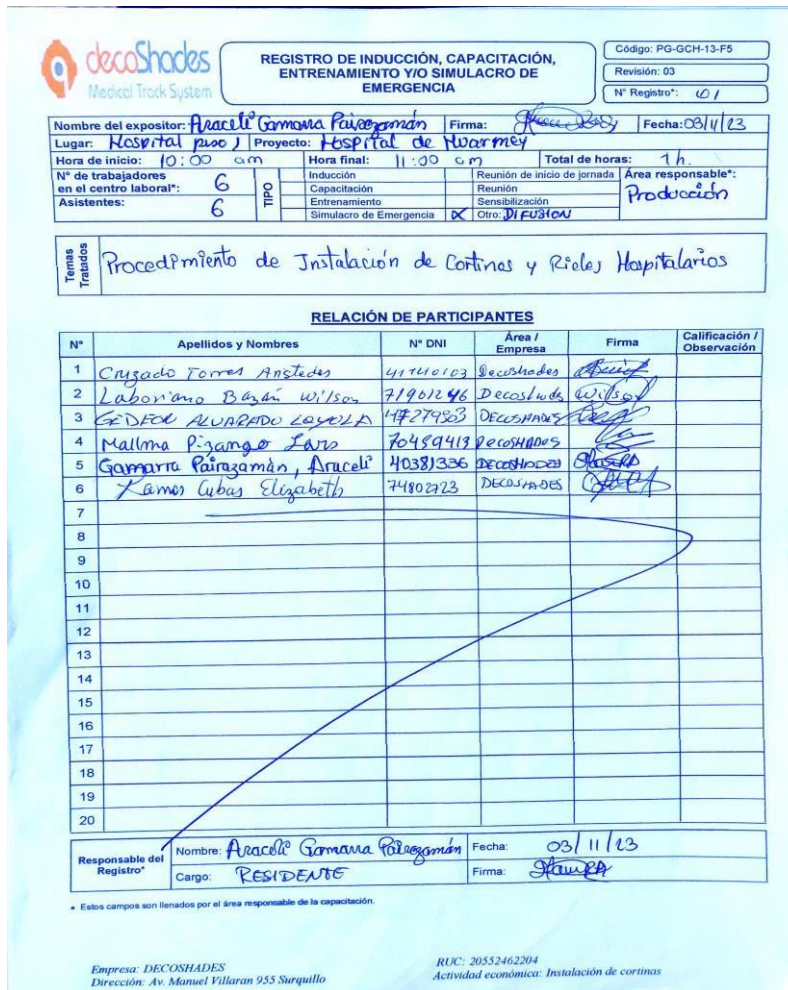 decoShades
Medical Track System
REGISTRO DE INDUCCIÓN, CAPACITACIÓN,
ENTRENAMIENTO Y/O SIMULACRO DE
EMERGENCIA
Código: PG-GCH-13-F5
Revisión: 03
N° Registro*: 01
Nombre del expositor: Araceli Gamarra Pairazamán Firma: Fecha: 03/11/23
Lugar: Hospital piso 1 Proyecto: Hospital de Huarmey
Hora de inicio: 10:00 am Hora final: 11:00 am Total de horas: 1 h.
N° de trabajadores en el centro laboral*: 6
Asistentes: 6
TIPO
Inducción
Capacitación
Entrenamiento
Simulacro de Emergencia
Reunión de inicio de jornada
Reunión
Sensibilización
X Otro: DIFUSION
Área responsable*:
Producción
Temas Tratados
Procedimiento de Instalación de Cortinas y Rieles Hospitalarios
RELACIÓN DE PARTICIPANTES
N° Apellidos y Nombres N° DNI Área / Empresa Firma Calificación / Observación
1 Cruzado Torres Decoshades
2 Laboriano Bazán Wilson 71901246 Decoshades Wilson
3 GEDEON ALVARADO LOYOLA DECOSHADES
4 Mallma Pizango 70489413 DECOSHADES
5 Gamarra Pairazamán, Araceli 40381336 DECOSHADES
6 Ramos Cubas Elizabeth 74802723 DECOSHADES
7
8
9
10
11
12
13
14
15
16
17
18
19
20
Responsable del Registro*
Nombre: Araceli Gamarra Pairazamán Fecha: 03/11/23
Cargo: RESIDENTE Firma:
* Estos campos son llenados por el área responsable de la capacitación.
Empresa: DECOSHADES
Dirección: Av. Manuel Villaran 955 Surquillo
RUC: 20552462204
Actividad económica: Instalación de cortinas